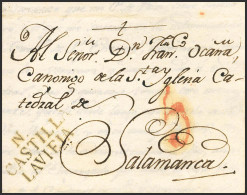 Al Señor Dn Franco Ocaña,
Canonigo de la Sta Yglesia Ca-
tedral de
Salamanca.
N
CASTILLA
LAVIEJA